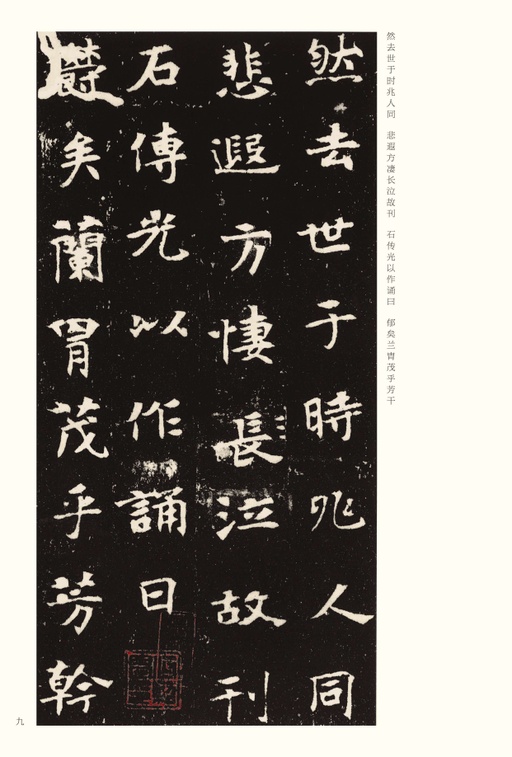 然去世于时兆人同 悲遐方凄长泣故刊 石传光以作诵曰 郁矣兰胄茂乎芳干
然去世于時兆人同
悲遐方悽長泣故刊
石傳光以作誦曰
欝矣蘭胄茂乎芳幹
九